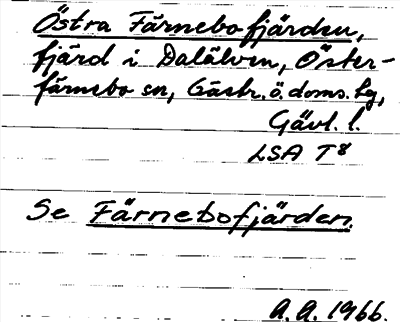 Östra Färnebofjärden,
fjärd i Dalälven, Öster-
färnebo sn, Gästr. ö. doms. hg,
Gävl. l.
LSA T8
Se Färnebofjärden.
A. A. 1966.